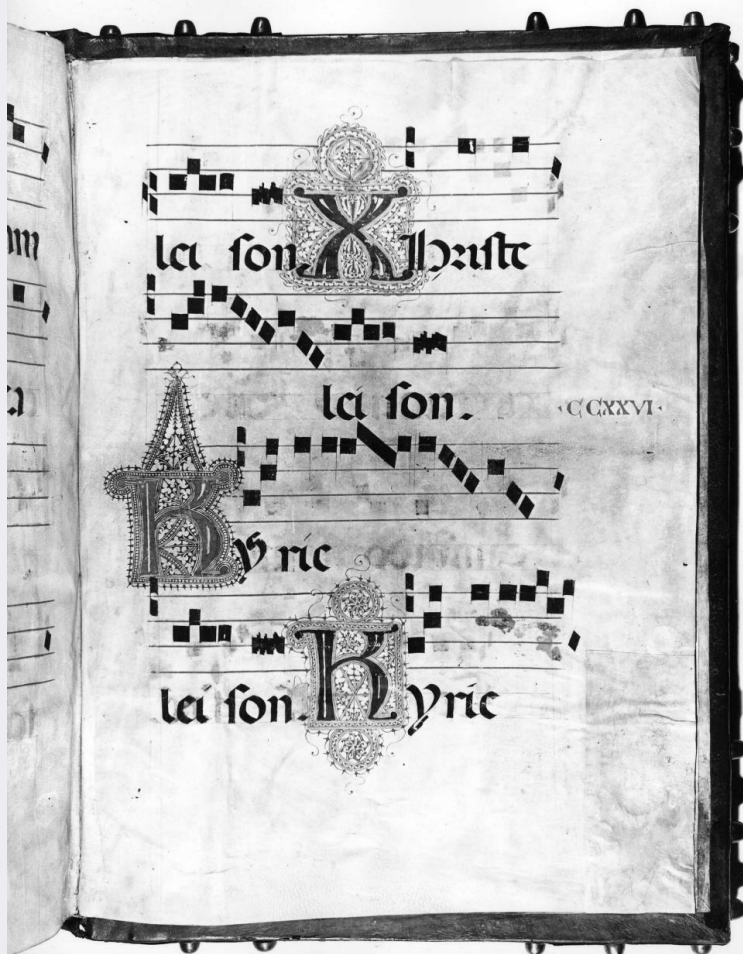 lei son. Xhriste
lei son.
·CCXXVI·
Kyrie
lei son. Kyrie